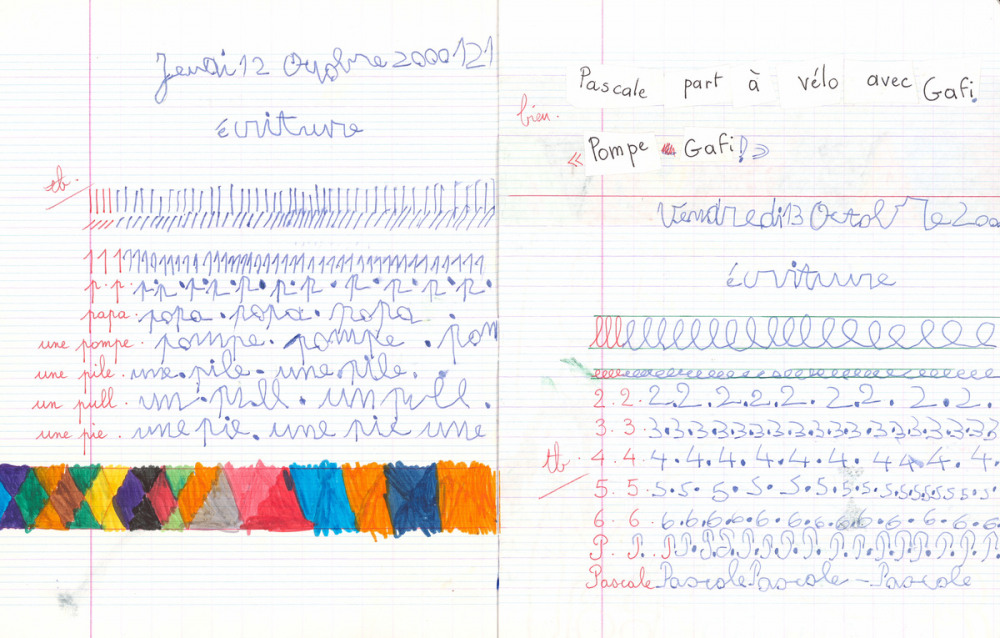 Jeudi 12 Octobre 2000
écriture
tb.
p. p. p. p. p. p. p. p. p. p. p. p. p. p.
papa. papa. papa. papa
une pompe. pompe. pompe. pom
une pile. une. pile. une pile.
un pull. un pull. un pull.
une pie. une pie. une pie une
Pascale part à vélo avec Gafi.
bien.
« Pompe Gafi! »
Vendredi 13 Octobre 2000
écriture
2. 2. 2. 2. 2. 2. 2. 2. 2. 2. 2.
3. 3. 3. 3. 3. 3. 3. 3. 3. 3. 3. 3. 3. 3. 3.
tb. 4. 4. 4. 4. 4. 4. 4. 4. 4 4. 4. 4.
5. 5. 5. 5. 5. 5. 5. 5. 5. 5. 5. 5. 5. 5. 5.
6. 6. 6. 6. 6. 6. 6. 6. 6. 6. 6. 6. 6. 6.
P. P. P. P. P. P. P. P. P. P. P. P. P. P. P.
Pascale Pascale Pascale - Pascale